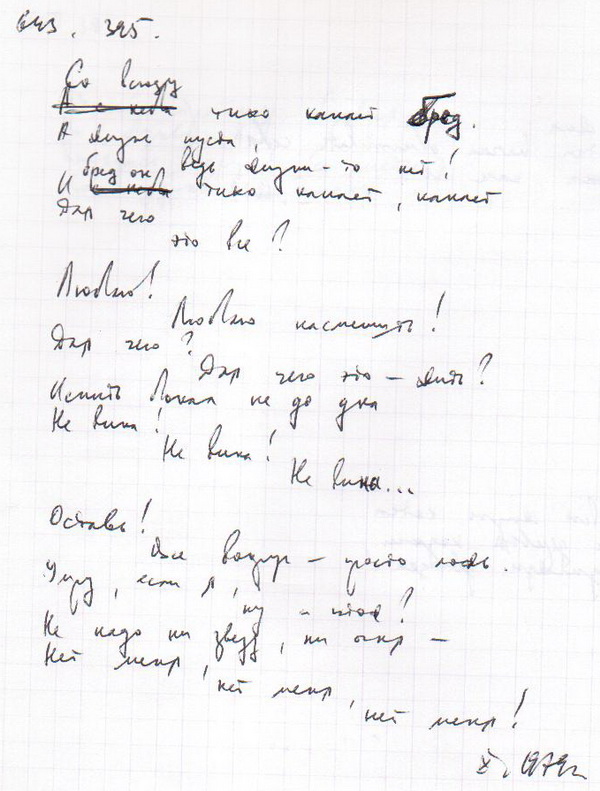 643. 395.
Со всюду
А с неба тихо капает бред.
А душа пуста
ведь души-то нет!
бред он
И с неба тихо капает, капает
Для чего
это все?
Люблю!
Люблю насмешить!
Для чего?
Для чего это — жить?
Испить бокал не до дна
Не вина!
Не вина!
Не вина...
Оставь!
Все вокруг — просто ложь
Умру, если я,
ну и что ж?
Не надо ни звезд, ни огня —
Нет меня,
нет меня,
нет меня!
X. 1979г.